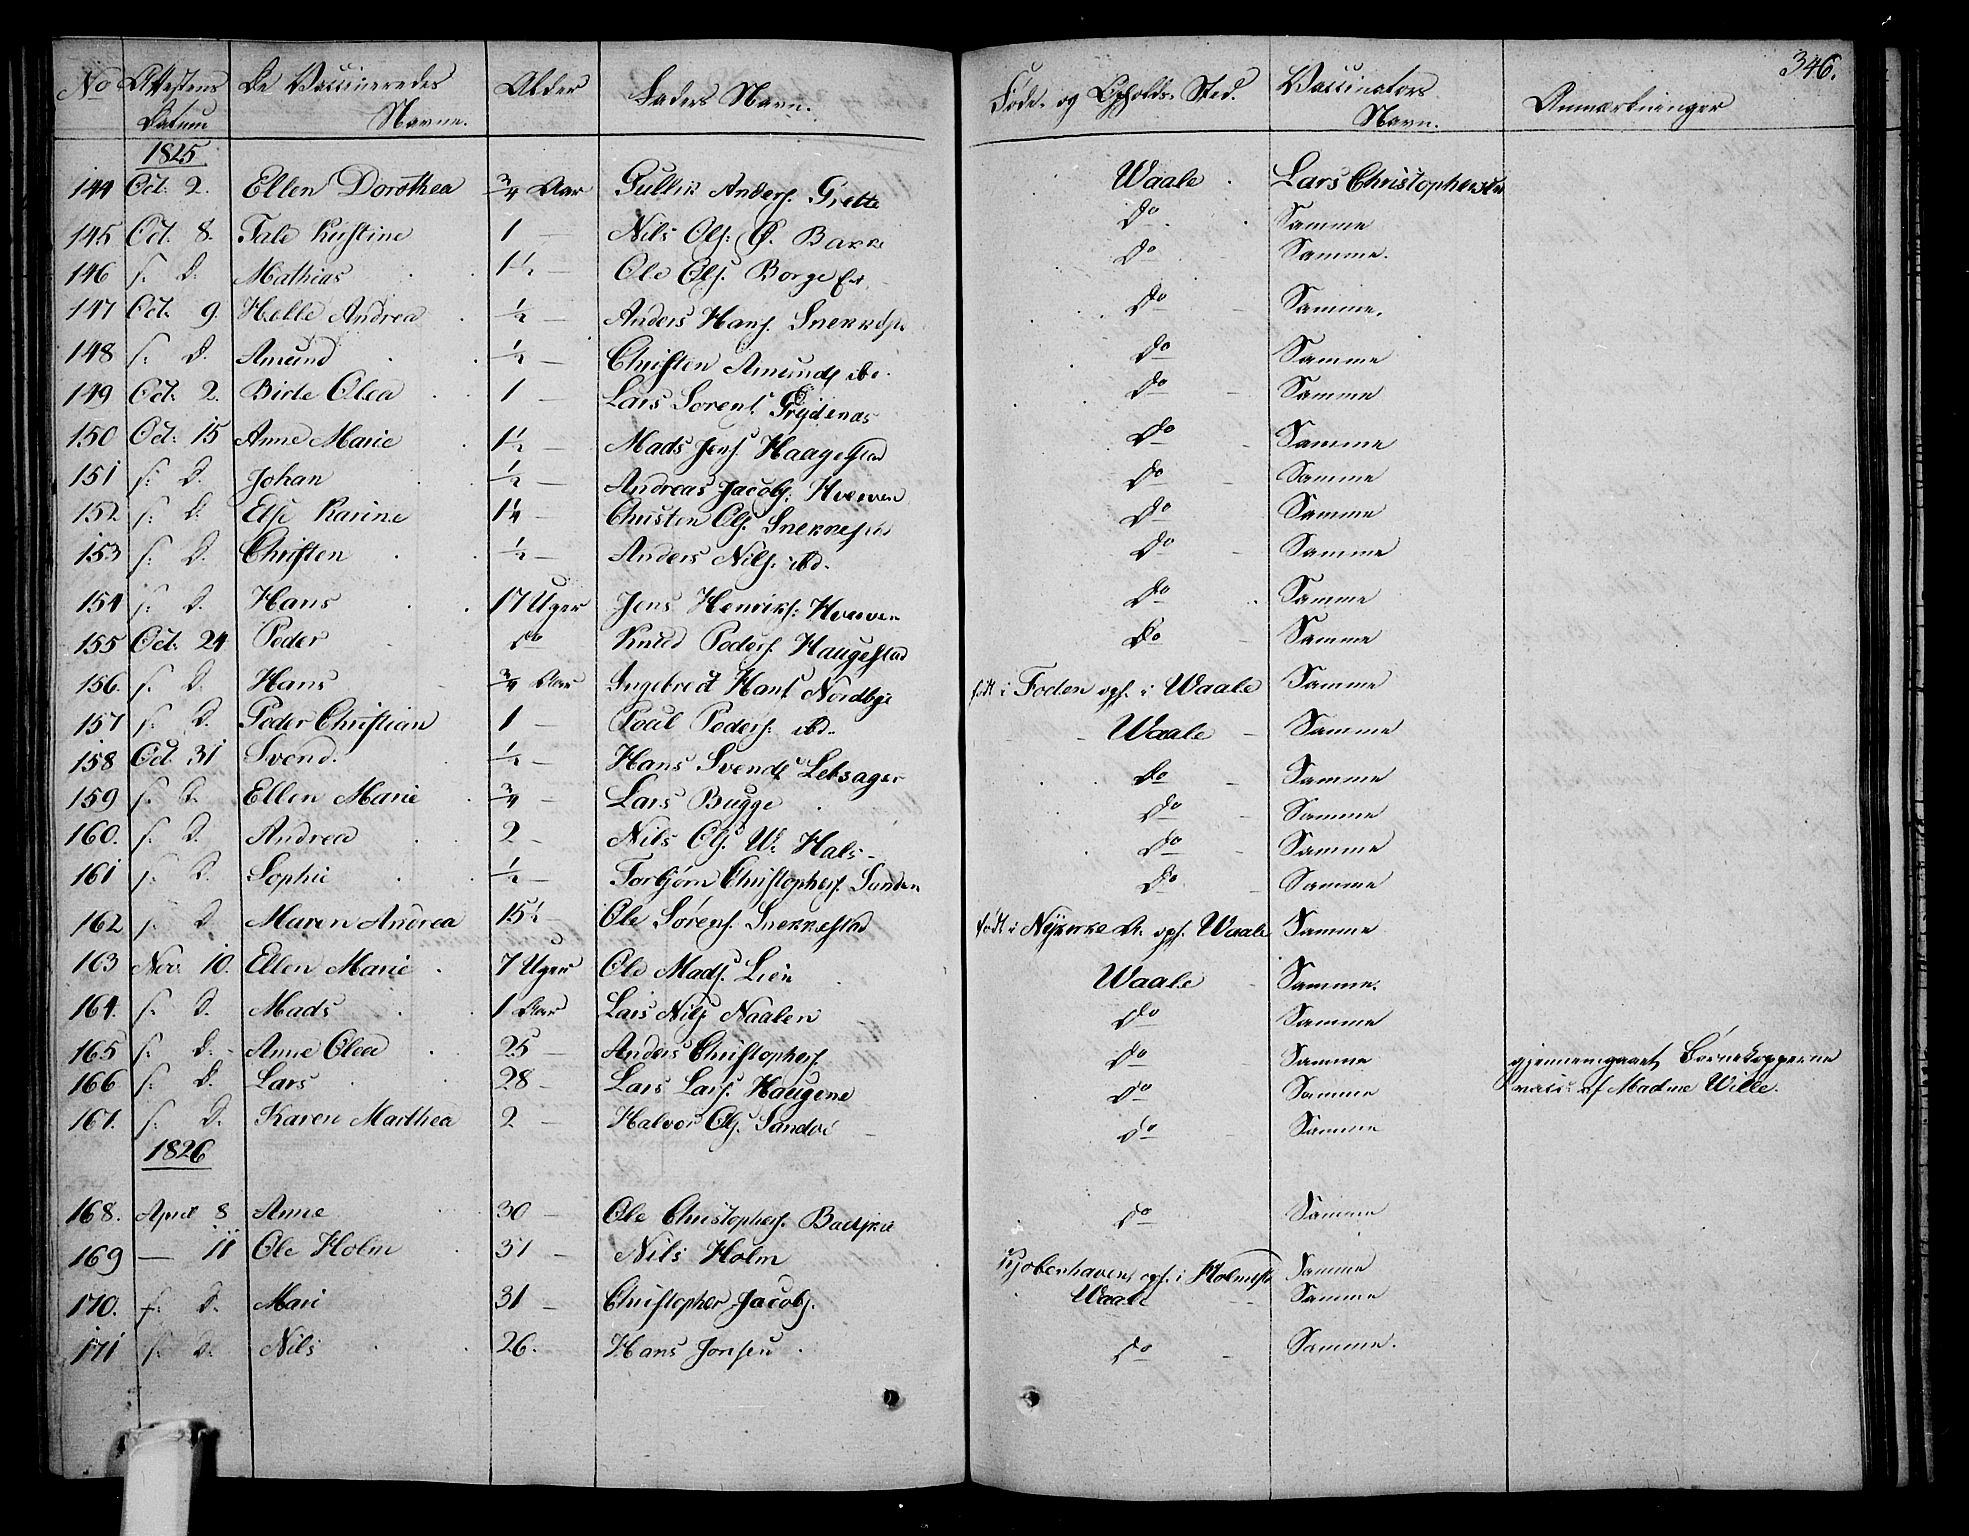 346.
No Attestens Datum De Vaccineredes Navne. Alder Faders Navn. Føde- og Opholds-Sted. Vaccinators Navn. Anmærkninger
1825
144 Oct: 2. Ellen Dorothea 3/4 Aar Gullik Anders. Grette Waale Lars Christophersen
145 Oct. 8. Tale Kirstine 1 — Nils Ols: Ø. Bakke Do Samme
146 s. D. Mathias 1 1/2 — Ole Ols. Borge Do Samme.
147 Oct. 9. Helle Andrea 1/2 — Anders Hans. Do Samme.
148 s: D. Amund 1/2 — Christen Amunds. ibd. Do Samme
149 Oct. 2. Birte Olea 1 — Lars Sorens. Do Samme
150 Oct: 15 Anne Marie 1 1/2 — Mads Jens. Haagestad Do Samme
151 s: D. Johan 1/2 — Andreas Jacobs: Hverven Do Samme
152 s: D: Else Karine 1 1/4 - Christen Ols. Snekkestad Do Samme
153 s. D. Christen 1/2 — Anders Nils. ibd. Do Samme
154 s. D. Hans 17 Uger Jens Henriks: Hverven Do Samme
155 Oct. 24 Peder do Knud Peders. Haugestad Do Samme
156. s. D. Hans 3/4 Aar Ingebret Hans. Nordbye født i Foden ops. i Waale Samme
157 s. D. Peder Christian 1 — Poul Peders: ibd. Waale Samme
158 Oct. 31 Svend. 1/2 — Hans Svends. Lebsager Do Samme
159 s. D. Ellen Marie 3/4 — Lars Bugge Do Samme
160. s. D. Andrea 2 - Nils Ols. W. Hals Do Samme
161 s. D. Sophie 1/2 — Torbjørn Christophers. Sunden Do Samme
162 s. D. Maren Andrea 15 1/2 Ole Sørens. Snekkestad født i Nykirke A. ops. Waale Samme
163 Nov. 10. Ellen Marie 7 Uger Ole Mads. Lien Waale Samme.
164. s. D. Mads 1 Aar Lars Nils. Naalen Do Samme
165 s. D. Anne Olea 25 — Anders Christophers. Do Samme gjennemgaaet Børnekopperne
166 s. D. Lars 28 - Lars Lars. Haugene Do Samme vacc. af Madme Wille.
167. s. D. Karen Marthea 2 — Halvor Ols. Sandvi Do Samme
1826
168. April 8 Anne 30 — Ole Christophers. Do Samme
169 — 11 Ole Holm 31 — Nils Holm Kjøbenhavn, ops. i Holmest Samme
170. s. D. Mari 31 — Christopher Jacobs. Waale Samme
171 s. D. Nils 26. Hans Jonsen Do Samme.